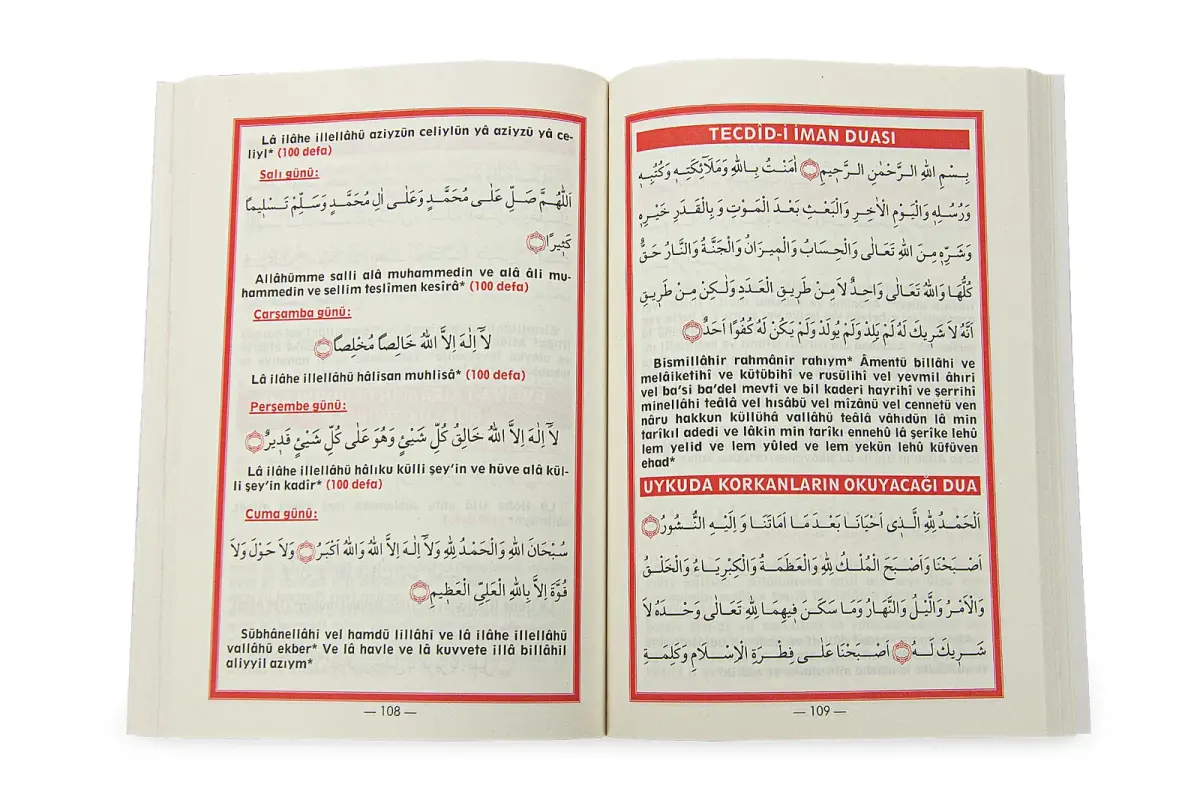 Lâ ilâhe illellâhü aziyzün celiylün yâ aziyzü yâ ce-
liyl* (100 defa)
Salı günü:
اَللّٰهُمَّ صَلِّ عَلٰى مُحَمَّدٍ وَعَلٰى اٰلِ مُحَمَّدٍ وَسَلِّمْ تَسْلٖيمًا
كَثٖيرًا
Allâhümme salli alâ muhammedin ve alâ âli mu-
hammedin ve sellim teslîmen kesîrâ* (100 defa)
Çarşamba günü:
لَٓا اِلٰهَ اِلَّا اللّٰهُ خَالِصًا مُخْلِصًا
Lâ ilâhe illellâhü hâlisan muhlisâ* (100 defa)
Perşembe günü:
لَٓا اِلٰهَ اِلَّا اللّٰهُ خَالِقُ كُلِّ شَيْئٍ وَهُوَ عَلٰى كُلِّ شَيْئٍ قَدٖيرٌ
Lâ ilâhe illellâhü hâlıku külli şey'in ve hüve alâ kül-
li şey'in kadîr* (100 defa)
Cuma günü:
سُبْحَانَ اللّٰهِ وَالْحَمْدُ لِلّٰهِ وَلَٓا اِلٰهَ اِلَّا اللّٰهُ وَاللّٰهُ اَكْبَرُ وَلَا حَوْلَ وَلَا
قُوَّةَ اِلَّا بِاللّٰهِ الْعَلِيِّ الْعَظٖيمِ
Sübhânellâhi vel hamdü lillâhi ve lâ ilâhe illellâhü
vallâhü ekber* Ve lâ havle ve lâ kuvvete illâ billâhil
aliyyil azıym*
— 108 —
TECDÎD-İ İMAN DUASI
بِسْمِ اللّٰهِ الرَّحْمٰنِ الرَّحٖيمِ اٰمَنْتُ بِاللّٰهِ وَمَلَٓائِكَتِهٖ وَكُتُبِهٖ
وَرُسُلِهٖ وَالْيَوْمِ الْاٰخِرِ وَالْبَعْثِ بَعْدَ الْمَوْتِ وَبِالْقَدَرِ خَيْرِهٖ
وَشَرِّهٖ مِنَ اللّٰهِ تَعَالٰى وَالْحِسَابُ وَالْمٖيزَانُ وَالْجَنَّةُ وَالنَّارُ حَقٌّ
كُلُّهَا وَاللّٰهُ تَعَالٰى وَاحِدٌ لَا مِنْ طَرٖيقِ الْعَدَدِ وَلٰكِنْ مِنْ طَرٖيقِ
اَنَّهُ لَا شَرٖيكَ لَهُ لَمْ يَلِدْ وَلَمْ يُولَدْ وَلَمْ يَكُنْ لَهُ كُفُوًا اَحَدٌ
Bismillâhir rahmânir rahıym* Âmentü billâhi ve
melâiketihî ve kütübihî ve rusülihî vel yevmil âhıri
vel ba'si ba'del mevti ve bil kaderi hayrihî ve şerrihî
minellâhi teâlâ vel hısâbü vel mîzânü vel cennetü ven
nâru hakkun küllühâ vallâhü teâlâ vâhıdün lâ min
tarîkıl adedi ve lâkin min tarîkı ennehû lâ şerîke lehû
lem yelid ve lem yûled ve lem yekün lehû küfüven
ehad*
UYKUDA KORKANLARIN OKUYACAĞI DUA
اَلْحَمْدُ لِلّٰهِ الَّذٖى اَحْيَانَا بَعْدَ مَا اَمَاتَنَا وَاِلَيْهِ النُّشُورُ
اَصْبَحْنَا وَاَصْبَحَ الْمُلْكُ لِلّٰهِ وَالْعَظَمَةُ وَالْكِبْرِيَاءُ وَالْخَلْقُ
وَالْاَمْرُ وَالَّيْلُ وَالنَّهَارُ وَمَا سَكَنَ فٖيهِمَا لِلّٰهِ تَعَالٰى وَحْدَهُ لَا
شَرٖيكَ لَهُ اَصْبَحْنَا عَلٰى فِطْرَةِ الْاِسْلَامِ وَكَلِمَةِ
— 109 —